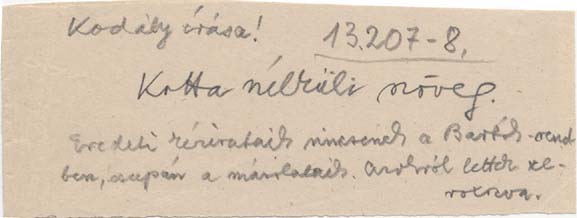 Kodály írása!
13.207-8,
Kotta nélküli szöveg.
Eredeti kézirataik nincsenek a Bartók-rend-
ben, csupán a másolataik. Azokról lettek xe-
roxozva.